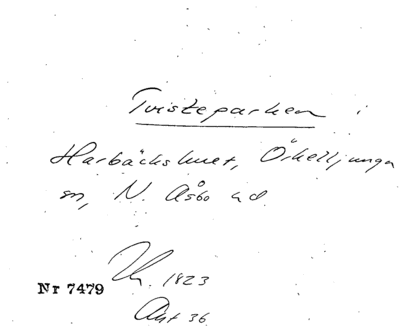 Tvisteparken i
Harbäckshult, Örkelljunga
sn, N. Åsbo hd.
Nr 7479
1823
Akt 36